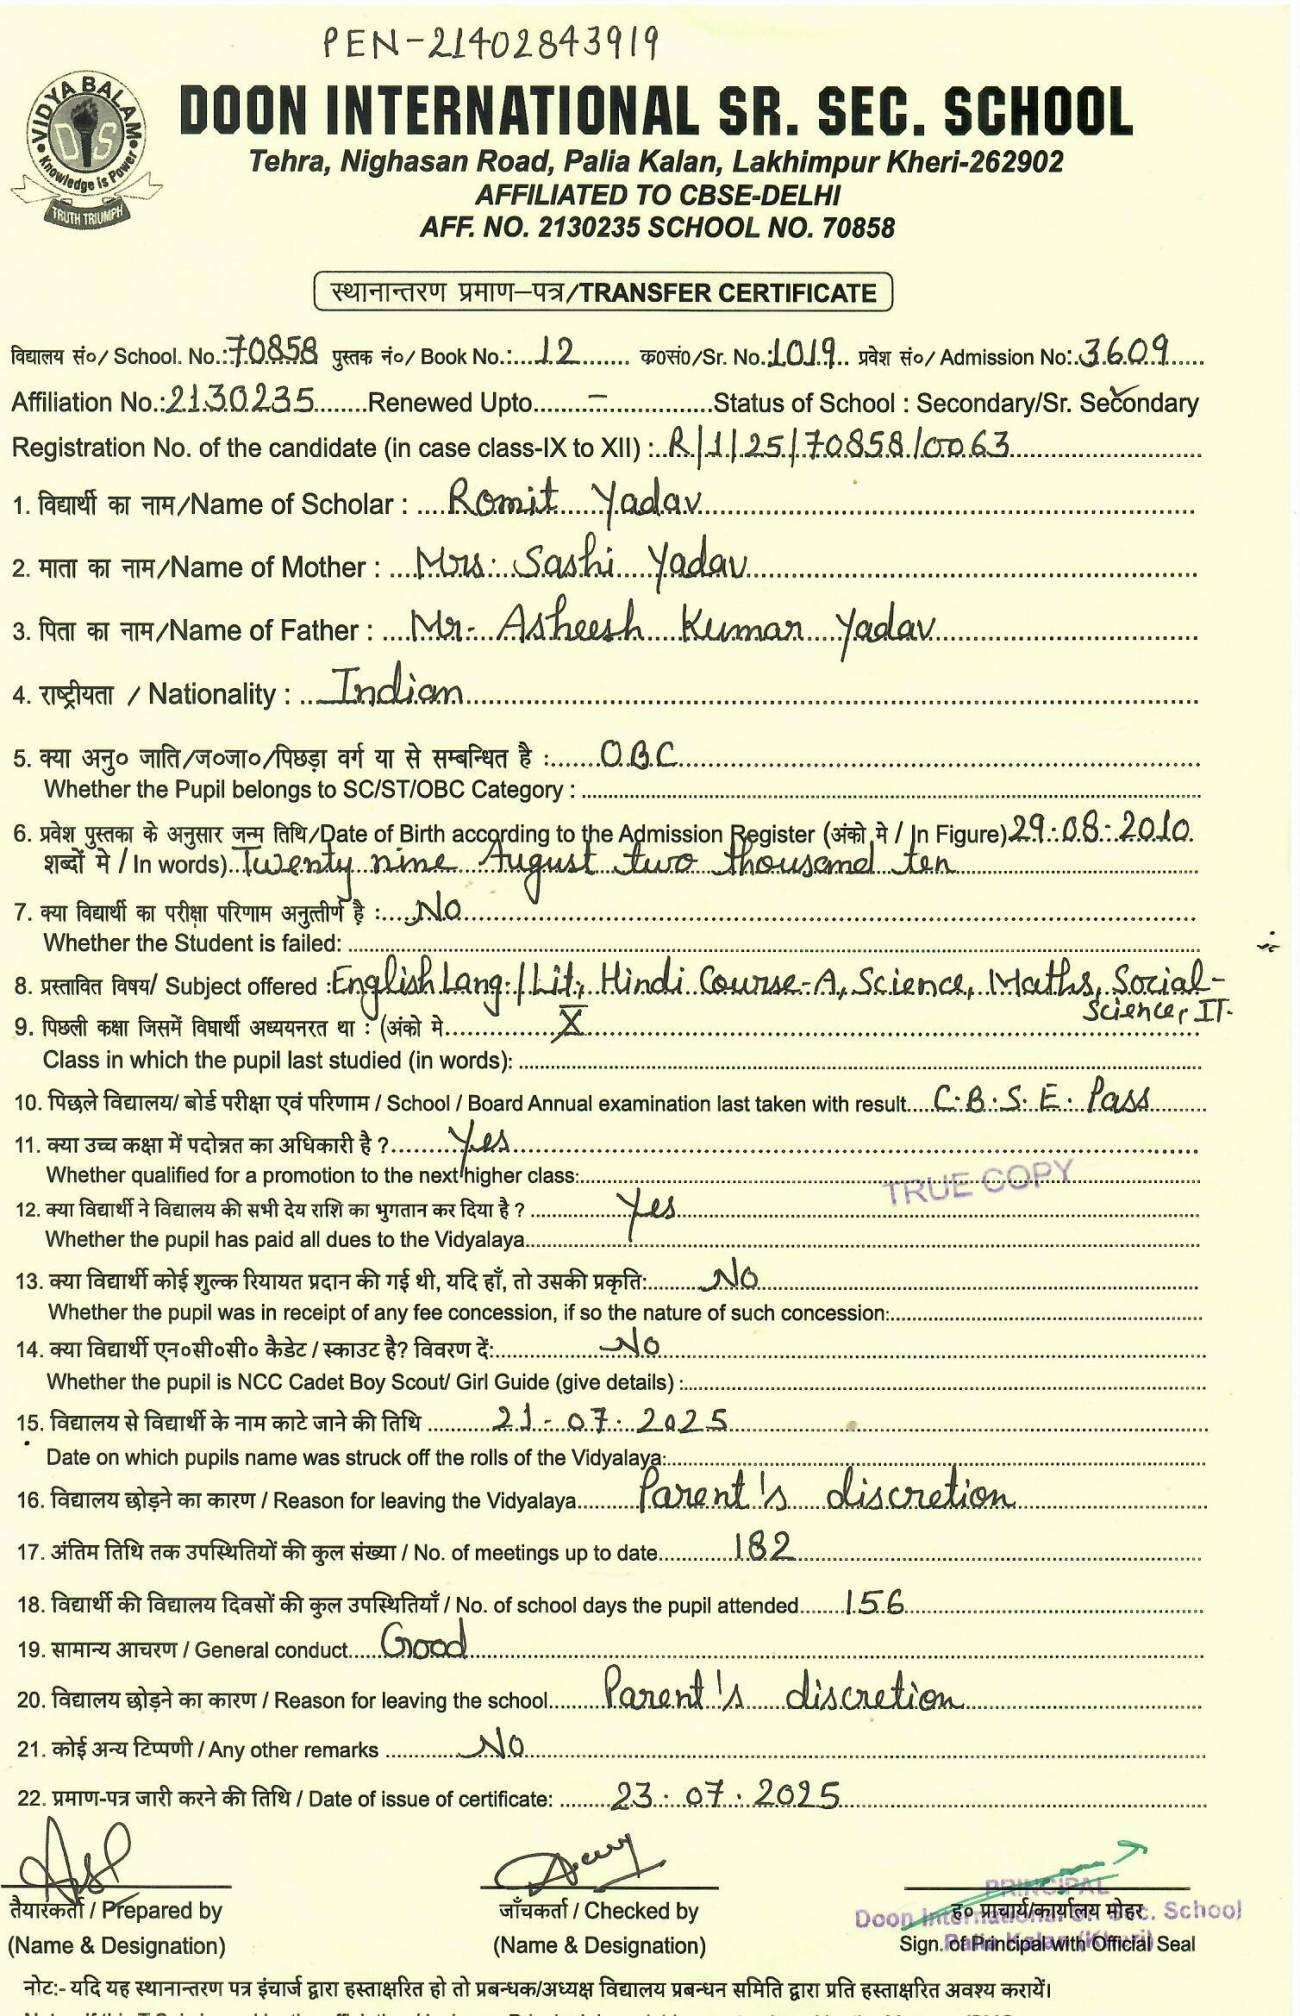 PEN-21402843919
VIDYA BALAM
DIS
Knowledge is Power
TRUTH TRIUMPH
DOON INTERNATIONAL SR. SEC. SCHOOL
Tehra, Nighasan Road, Palia Kalan, Lakhimpur Kheri-262902
AFFILIATED TO CBSE-DELHI
AFF. NO. 2130235 SCHOOL NO. 70858
स्थानान्तरण प्रमाण–पत्र/TRANSFER CERTIFICATE
विद्यालय सं०/ School. No.: 70858 पुस्तक नं०/ Book No.: 12 क०सं०/Sr. No.: 1019 प्रवेश सं०/ Admission No: 3609
Affiliation No.: 2130235 Renewed Upto – Status of School : Secondary/Sr. Secondary
Registration No. of the candidate (in case class-IX to XII) : R/1/25/70858/0063
1. विद्यार्थी का नाम/Name of Scholar : Romit Yadav
2. माता का नाम/Name of Mother : Mrs. Sashi Yadav
3. पिता का नाम/Name of Father : Mr. Asheesh Kumar Yadav
4. राष्ट्रीयता / Nationality : Indian
5. क्या अनु० जाति/ज०जा०/पिछड़ा वर्ग या से सम्बन्धित है : OBC
Whether the Pupil belongs to SC/ST/OBC Category :
6. प्रवेश पुस्तका के अनुसार जन्म तिथि/Date of Birth according to the Admission Register (अंको मे / In Figure) 29.08.2010
शब्दों मे / In words) Twenty nine August two thousand ten
7. क्या विद्यार्थी का परीक्षा परिणाम अनुत्तीर्ण है : No
Whether the Student is failed:
8. प्रस्तावित विषय/ Subject offered : English Lang./Lit, Hindi Course-A, Science, Maths, Social-
Science, IT.
9. पिछली कक्षा जिसमें विघार्थी अध्ययनरत था : (अंको मे X
Class in which the pupil last studied (in words):
10. पिछले विद्यालय/ बोर्ड परीक्षा एवं परिणाम / School / Board Annual examination last taken with result C.B.S.E. Pass
11. क्या उच्च कक्षा में पदोन्नत का अधिकारी है ? Yes
Whether qualified for a promotion to the next higher class:
TRUE COPY
12. क्या विद्यार्थी ने विद्यालय की सभी देय राशि का भुगतान कर दिया है ? Yes
Whether the pupil has paid all dues to the Vidyalaya
13. क्या विद्यार्थी कोई शुल्क रियायत प्रदान की गई थी, यदि हाँ, तो उसकी प्रकृति: No
Whether the pupil was in receipt of any fee concession, if so the nature of such concession:
14. क्या विद्यार्थी एन०सी०सी० कैडेट / स्काउट है? विवरण दें: No
Whether the pupil is NCC Cadet Boy Scout/ Girl Guide (give details) :
15. विद्यालय से विद्यार्थी के नाम काटे जाने की तिथि 21-07-2025
Date on which pupils name was struck off the rolls of the Vidyalaya:
16. विद्यालय छोड़ने का कारण / Reason for leaving the Vidyalaya Parent's discretion
17. अंतिम तिथि तक उपस्थितियों की कुल संख्या / No. of meetings up to date 182
18. विद्यार्थी की विद्यालय दिवसों की कुल उपस्थितियाँ / No. of school days the pupil attended 156
19. सामान्य आचरण / General conduct Good
20. विद्यालय छोड़ने का कारण / Reason for leaving the school Parent's discretion
21. कोई अन्य टिप्पणी / Any other remarks No
22. प्रमाण-पत्र जारी करने की तिथि / Date of issue of certificate: 23.07.2025
PRINCIPAL
तैयारकर्ता / Prepared by जाँचकर्ता / Checked by ह० प्राचार्य/कार्यालय मोहर
Doon International Sr. Sec. School
Palia Kalan (Kheri)
(Name & Designation) (Name & Designation) Sign. of Principal with Official Seal
नोटः- यदि यह स्थानान्तरण पत्र इंचार्ज द्वारा हस्ताक्षरित हो तो प्रबन्धक/अध्यक्ष विद्यालय प्रबन्धन समिति द्वारा प्रति हस्ताक्षरित अवश्य करायें।